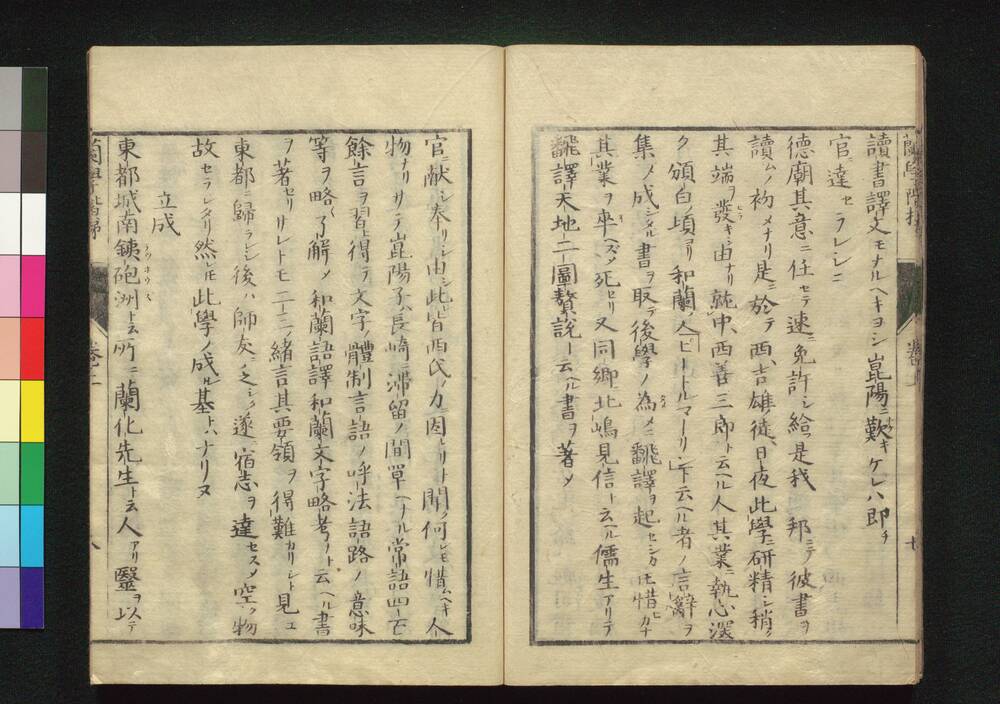 讀書譯文モナルヘキヨシ崑陽ニ歎キケレハ即チ
官ニ達セラレシニ
德廟其意ニ任セテ速ニ免許シ給フ是我 邦ニテ彼書ヲ
讀ムノ初メナリ是ニ於テ西、吉雄徒、日夜此學ニ研精シ稍ク
其端ヲ發キシ由ナリ就中、西善三郎ト云ヘル人其業ニ執心深
ク頒白頃ヨリ和蘭ノ人「ピートルマーリ」ト云ヘル者ノ言辭ヲ
集メ成シタル書ヲ取テ後學ノ為メニ飜譯ヲ起セシカ𪜈惜ヒカナ
其業ヲ卒ヘズメ死セリ又同鄉北嶋見信ト云ヘル儒生アリテ
飜譯天地二圖贅說ト云ヘル書ヲ著メ
官ニ献シ奉リシ由シ此皆西氏ノ力ニ因レリト聞ク何レモ惜ムヘキ人
物ナリサテ崑陽子ハ長崎ニ滯留ノ間單ヘナル常語四百
餘言ヲ習ヒ得テ文字ノ體制言語ノ呼法語路ノ意味
等ヲ略々了解メ 和蘭語譯和蘭文字略考ナト云ヘル書
ヲ著セリサレトモ一二ノ緒言其要領ヲ得難カリシト見ユ
東都ニ歸ラレシ後ハ師友ニ乏シク遂ニ宿志ヲ達セスメ空ク物
故セラレタリ然レ𪜈此學ノ成ル基トハナリヌ
立成
東都城南鐵砲洲ト云所ニ蘭化先生ト云人アリ醫ヲ以テ